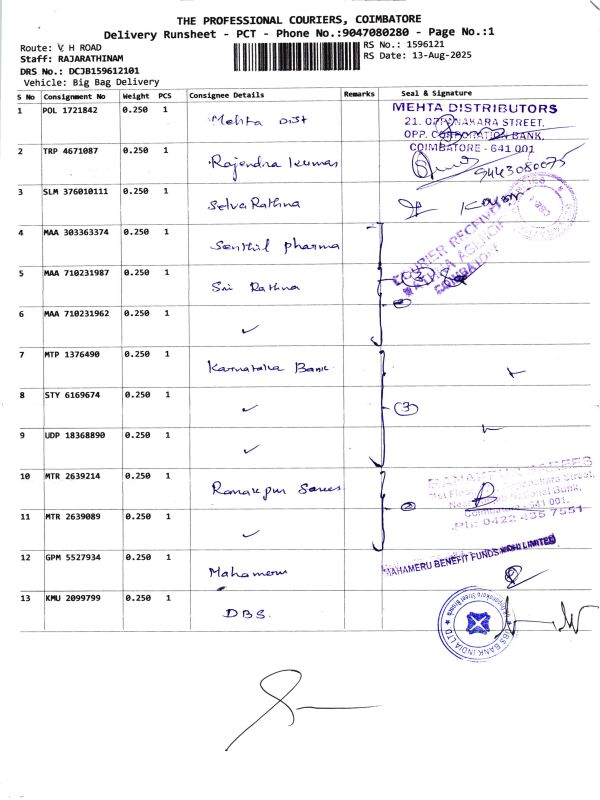 THE PROFESSIONAL COURIERS, COIMBATORE
Delivery Runsheet - PCT - Phone No.:9047080280 - Page No.:1
Route: V H ROAD
RS No.: 1596121
Staff: RAJARATHINAM
RS Date: 13-Aug-2025
DRS No.: DCJB159612101
Vehicle: Big Bag Delivery
S No Consignment No Weight PCS Consignee Details Remarks Seal & Signature
1 POL 1721842 0.250 1 Mehta Dist
MEHTA DISTRIBUTORS
21. OPPANAKARA STREET,
OPP. CORPORATION BANK,
COIMBATORE - 641 001
2 TRP 4671087 0.250 1 Rajendra Kumar 9443080075
3 SLM 376010111 0.250 1 Selva Rathna
4 MAA 303363374 0.250 1 Senthil pharma
COURIER RECEIVED
COIMBATORE
5 MAA 710231987 0.250 1 Sri Rathna
6 MAA 710231962 0.250 1 ✓
7 MTP 1376490 0.250 1 Karnataka Bank
8 STY 6169674 0.250 1 ✓ 3
9 UDP 18368890 0.250 1 ✓
10 MTR 2639214 0.250 1 Ramarpur Sarees
11 MTR 2639089 0.250 1 ✓
Coimbatore - 641 001.
Ph: 0422 435 7551
12 GPM 5527934 0.250 1 Mahameru
MAHAMERU BENEFIT FUNDS NIDHI LIMITED
13 KMU 2099799 0.250 1 DBS.
DBS BANK INDIA LTD